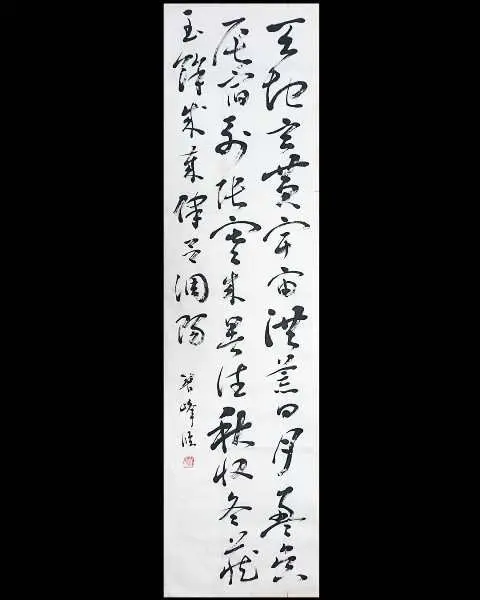 天地玄黃宇宙洪荒日月盈昃
辰宿列張寒來暑往秋收冬藏
閏餘成歲律呂調陽
峰